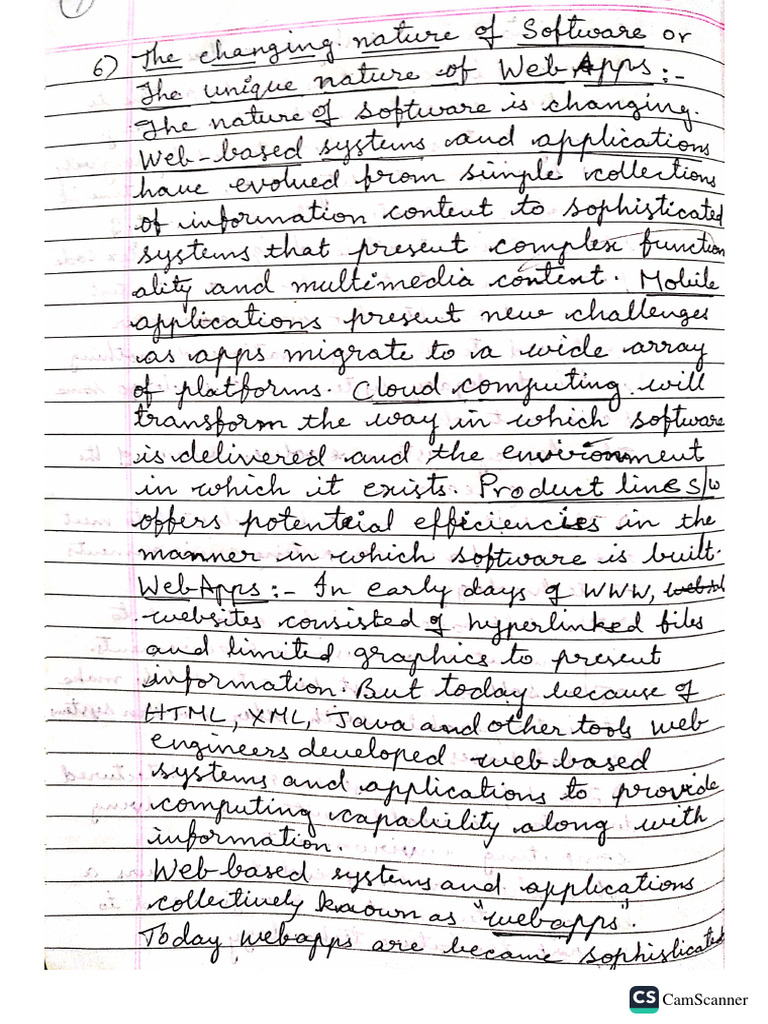 6) The changing nature of Software or
The unique nature of Web Apps :-
The nature of software is changing.
Web-based systems and applications
have evolved from simple collections
of information content to sophisticated
systems that present complex function
ality and multimedia content. Mobile
applications present new challenges
as apps migrate to a wide array
of platforms. Cloud computing will
transform the way in which software
is delivered and the environment
in which it exists. Product line s/w
offers potential efficiencies in the
manner in which software is built.
WebApps :- In early days of WWW,
websites consisted of hyperlinked files
and limited graphics to present
information. But today because of
HTML, XML, Java and other tools web
engineers developed web based
systems and applications to provide
computing capability along with
information.
Web based systems and applications
collectively known as "webapps".
Today webapps are became sophisticated
CS CamScanner